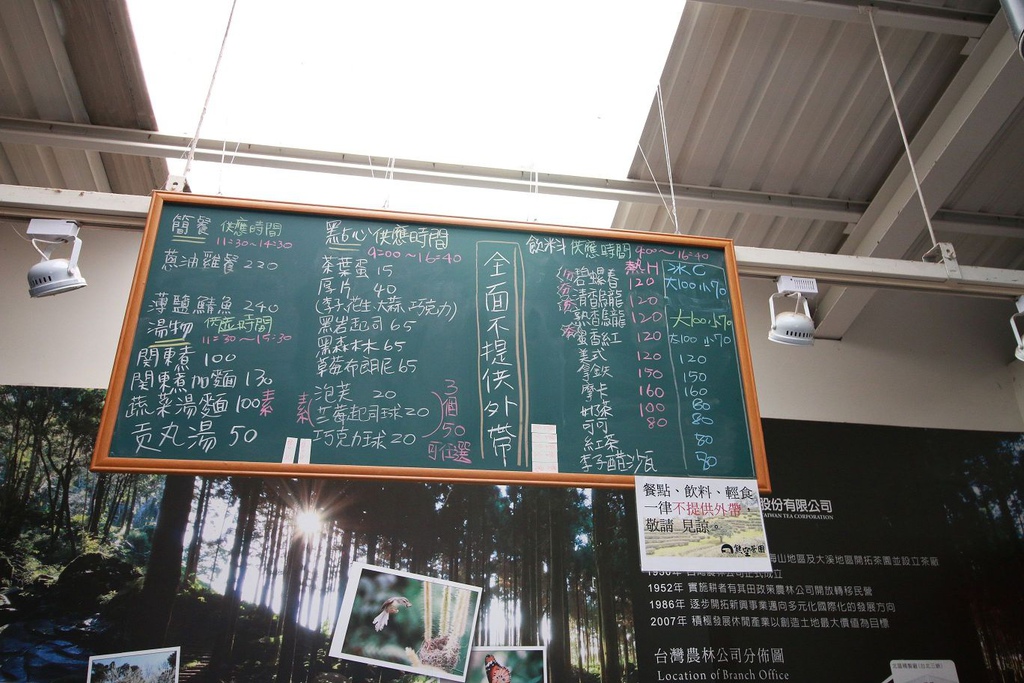 簡餐 供應時間
11:30~14:30
蔥油雞餐 220
薄鹽鯖魚 240
湯物 供應時間
11:30~15:30
関東煮 100
関東煮加麵 130
蔬菜湯麵 100 素
貢丸湯 50
點心 供應時間
9:00~16:40
茶葉蛋 15
厚片 40
(李子、花生、大蒜、巧克力)
黑岩起司 65
黑森木木 65
草莓布朗尼 65
素
泡芙 20
芒莓起司球 20
巧克力球 20
3個50
可任選
全面不提供外帶
飲料 供應時間 9:00~16:40
熱H 冰C
碧螺春 120 大100小70
清香烏龍 120
熟香烏龍 120 大100小70
蜜香紅 120 大100小70
美式 120 120
拿鐵 150 150
摩卡 160 160
奶茶 100 80
可可 80 80
紅茶 80
李子醋沙瓦 80
餐點、飲料、輕食
一律不提供外帶，
敬請 見諒。
熊空茶園
股份有限公司
TAIWAN TEA CORPORATION
海山地區及大溪地區開拓茶園並設立茶廠
1950年 台灣農林公司正式成立
1952年 實施耕者有其田政策農林公司開放轉移民營
1986年 逐步開拓新興事業邁向多元化國際化的發展方向
2007年 積極發展休閒產業以創造土地最大價值為目標
台灣農林公司分佈圖
Location of Branch Office